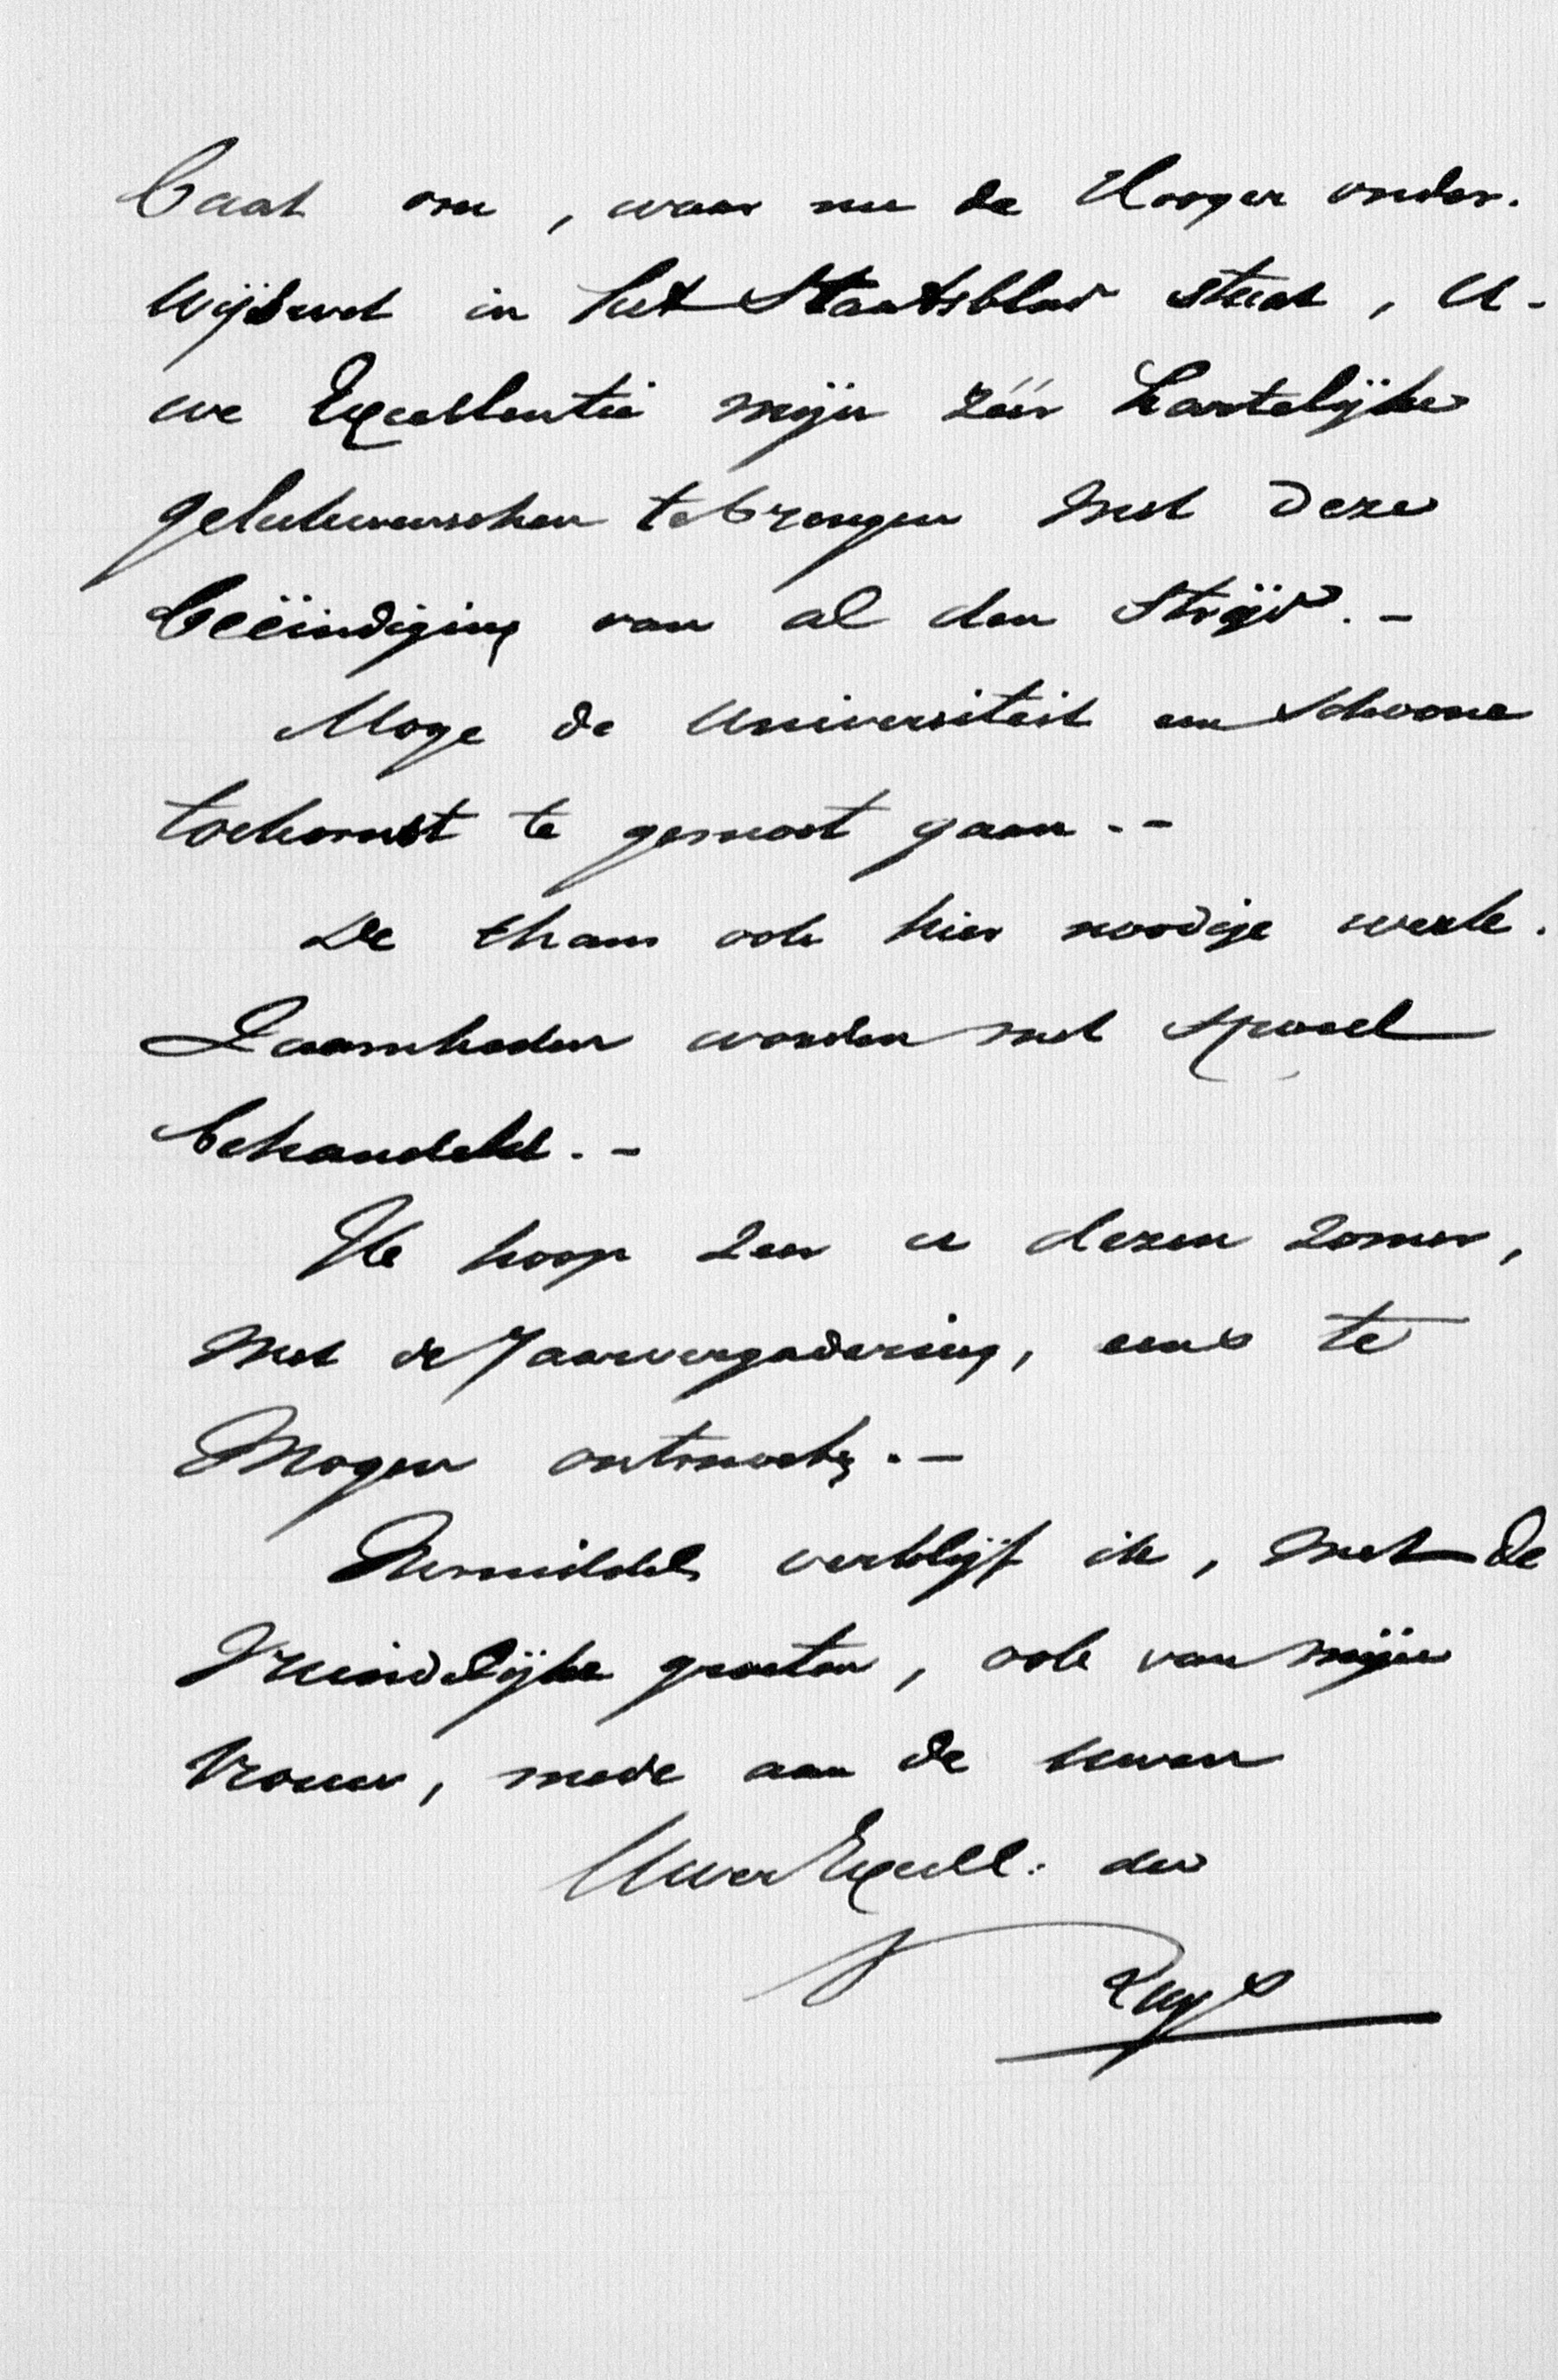 baat om, waar nu de Hooger onder-
wijswet in het Staatsblad staat, U-
we Excellentie mijn zéér hartelijke
gelukwenschen te brengen met deze
beëindiging van al den strijd. -
Moge de Universiteit een schoone
toekomst te gemoet gaan. -
De thans ook hier noodige werk-
zaamheden worden met spoed
behandeld. -
Ik hoop zeer u dezen zomer,
met de Jaarvergadering, eens te
mogen ontmoeten. -
Inmiddels verblijf ik, met de
vriendelijke groeten, ook van mijne
vrouw, mede aan de uwen
Uwer Excell: dw
Ruys